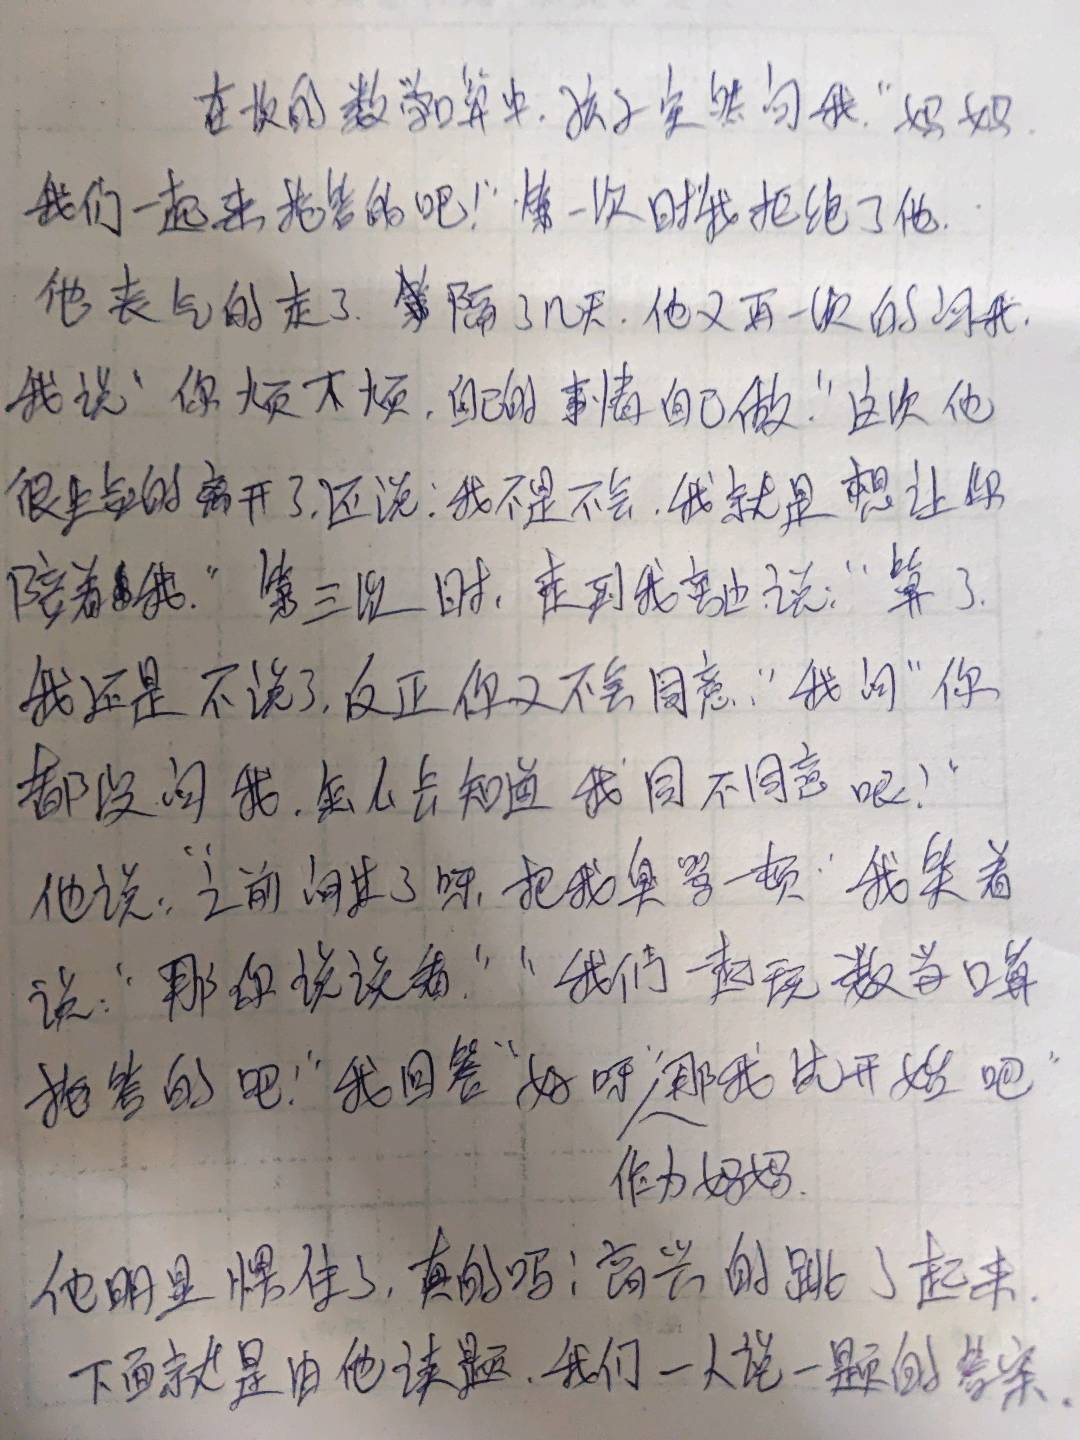 在做的数学口算中，孩子突然问我"妈妈
我们一起来抢答的吧！"第一次时我拒绝了他.
他丧气的走了.隔了几天.他又再一次的问我.
我说"你烦不烦，自己的事情自己做."这次他
很生气的离开了.还说：我不是不会.我就是想让你
陪着我."第三次时，走到我旁边说："算了.
我还是不说了，反正你又不会同意."我问"你
都没问我，怎么会知道我同不同意呢！"
他说："之前问过了呀,把我臭骂一顿"我笑着
说："那你说说看.""我们一起玩数学口算
抢答的吧！"我回答"好呀，那我先开始吧"
作为妈妈.
他明显愣住了，真的吗！高兴的跳了起来.
下面就是由他读题.我们一人说一题的答案.